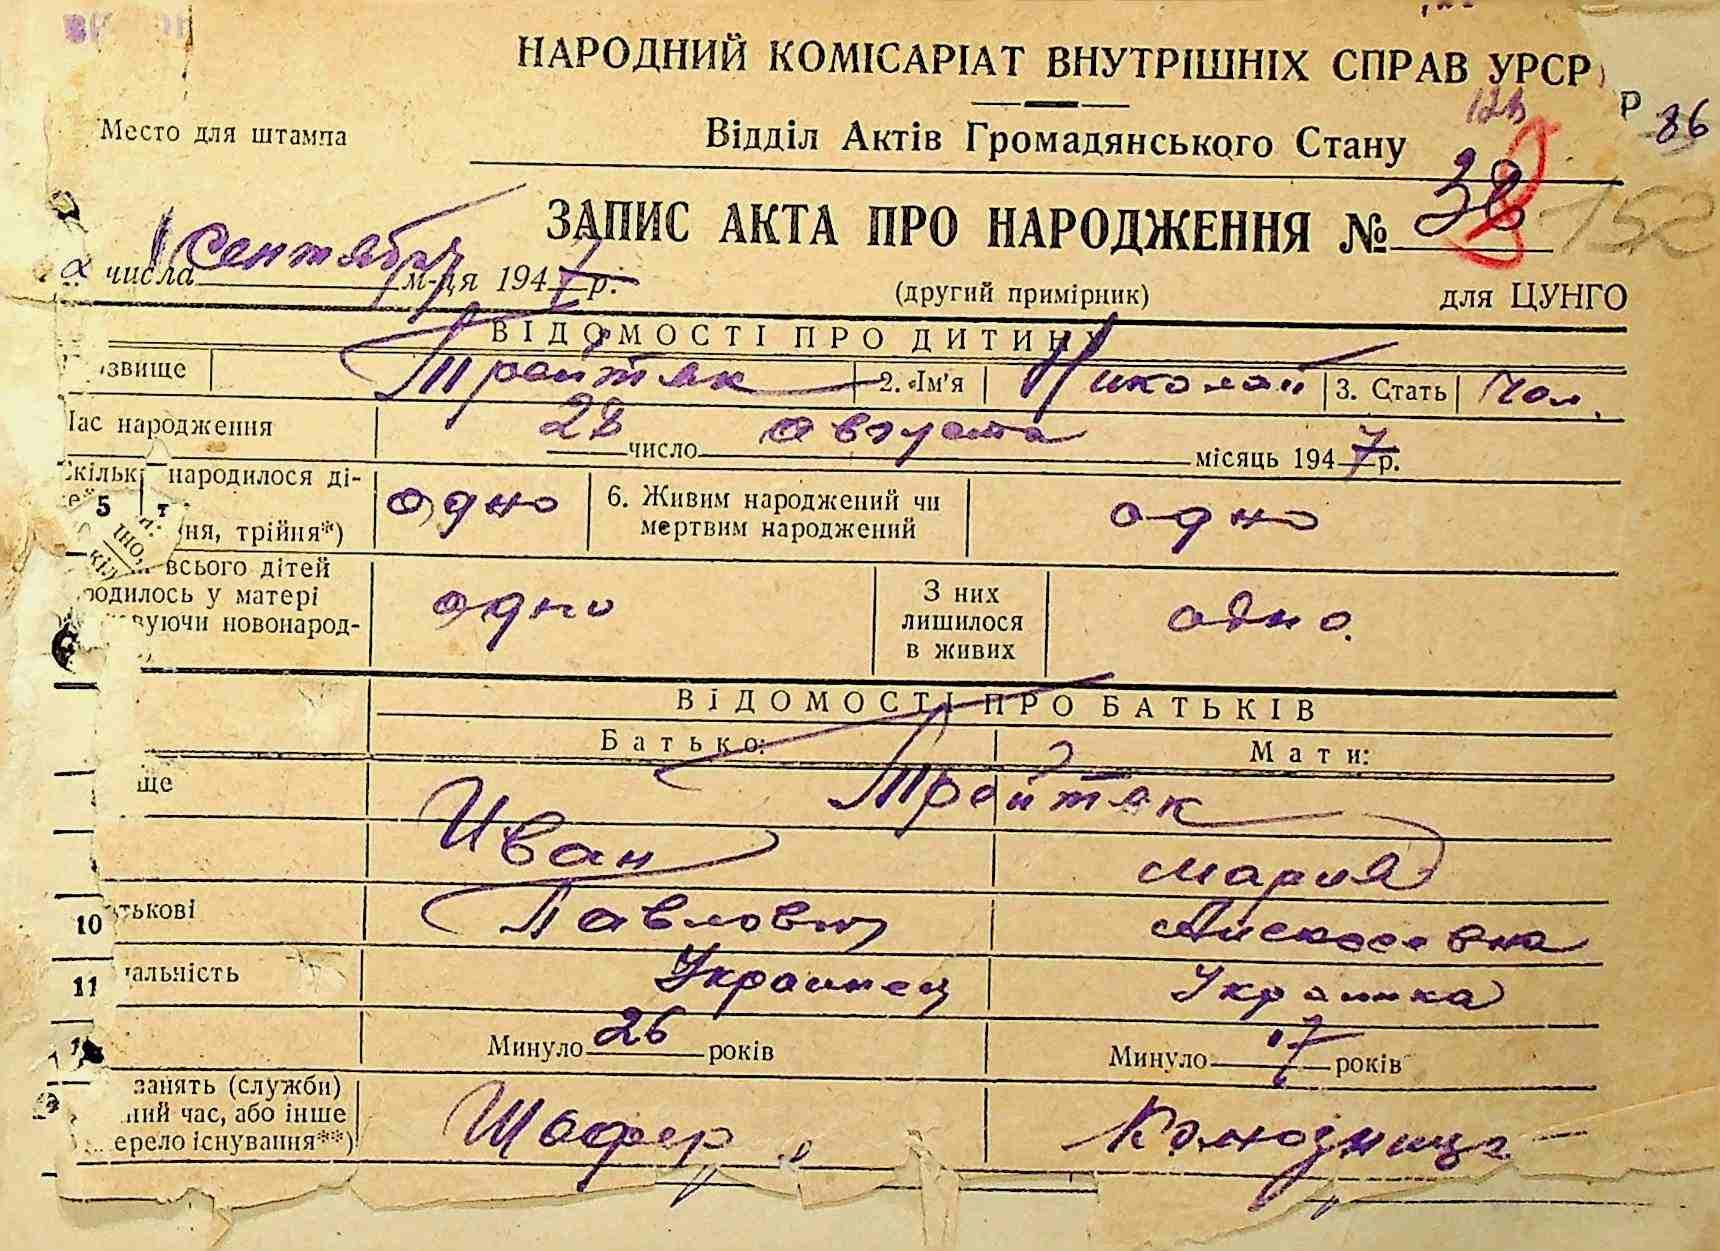 НАРОДНИЙ КОМІСАРІАТ ВНУТРІШНІХ СПРАВ УРСР
Р 86
Место для штампа
Відділ Актів Громадянського Стану
ЗАПИС АКТА ПРО НАРОДЖЕННЯ № 38 152
1 сентября
числа м-ця 1947 р.
(другий примірник) для ЦУНГО
ВІДОМОСТІ ПРО ДИТИНУ
звище Тройтяк 2. Ім'я Николай 3. Стать Чол.
час народження 28 число августа місяць 1947 р.
народилося ді-
ня, трійня*) одно 6. Живим народжений чи мертвим народжений одно
5
всього дітей
родилось у матері
вуючи новонарод- одно З них лишилося в живих одно.
ВІДОМОСТІ ПРО БАТЬКІВ
Батько: Мати:
ще Тройтяк
Иван Мария
10 тькові Павлович Алексеевна
11 альність Украинец Украинка
Минуло 26 років Минуло 17 років
занять (служби)
ний час, або інше
ерело існування**) Шофер Колхозница